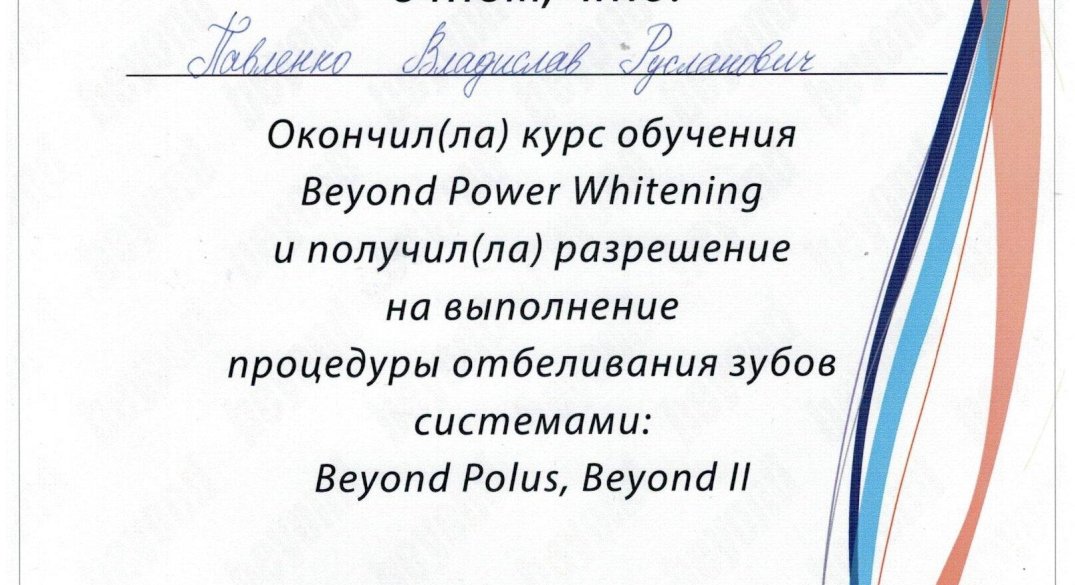 о том, что:
Павленко Владислав Русланович
Окончил(ла) курс обучения
Beyond Power Whitening
и получил(ла) разрешение
на выполнение
процедуры отбеливания зубов
системами:
Beyond Polus, Beyond II